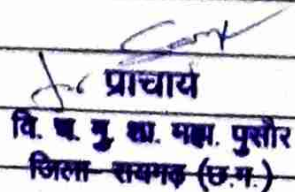 प्राचार्य
वि. च. गु. शा. महा. पुसौर
जिला-रायगढ़ (छ.ग.)